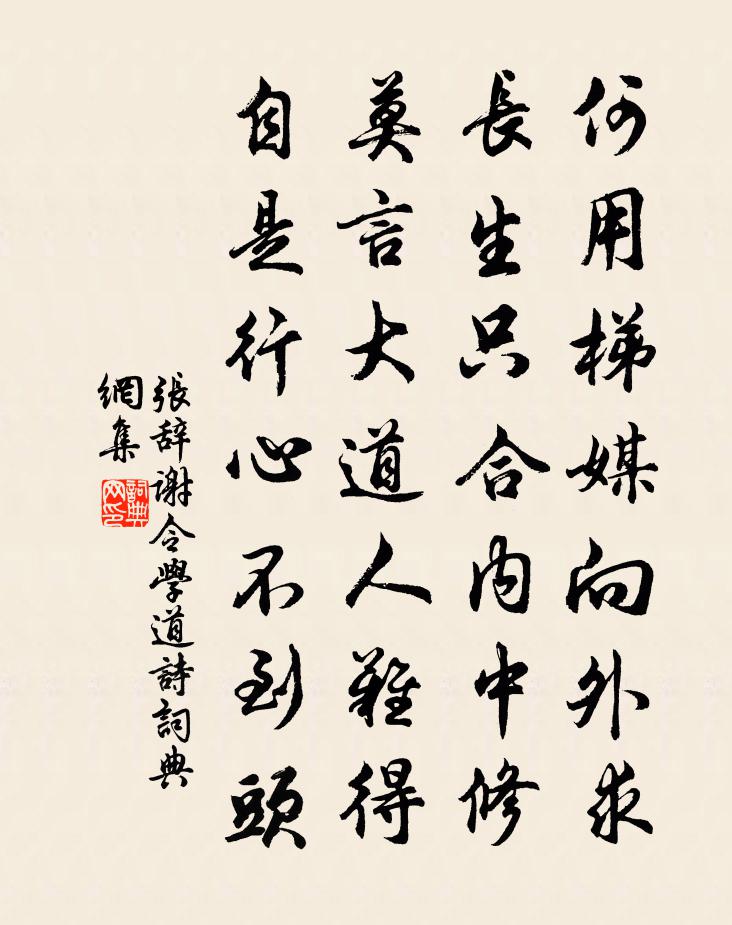 何用梯媒向外求
長生只合内中修
莫言大道人難得
自是行心不到頭
張辞謝令學道詩詞典
網集
詞典
网印